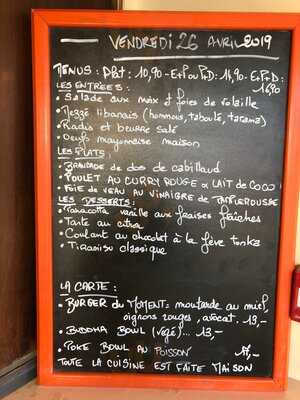 VENDREDI 26 AVRIL 2019
MENUS : Pdt : 10,90 - E+P ou P+D : 14,90 - E+P+D :
16,90
LES ENTRÉES :
• Salade aux noix & foies de volaille
• Mezzé libanais (hommous, taboulé, tarama)
• Radis et beurre salé
• Oeufs mayonnaise maison
LES PLATS :
• BRANDADE de dos de cabillaud
• POULET AU CURRY ROUGE & LAIT DE COCO
• FOIE DE VEAU AU VINAIGRE DE
LES DESSERTS :
• Panacotta vanille aux fraises fraîches
• Tarte au citron
• Coulant au chocolat à la fève tonka
• Tiramisu classique
LA CARTE :
• BURGER du MOMENT : moutarde au miel,
oignons rouges, avocat. 13,-
• BUDDHA BOWL (Végé)... 13,-
• POKE BOWL AU POISSON
TOUTE LA CUISINE EST FAITE MAISON